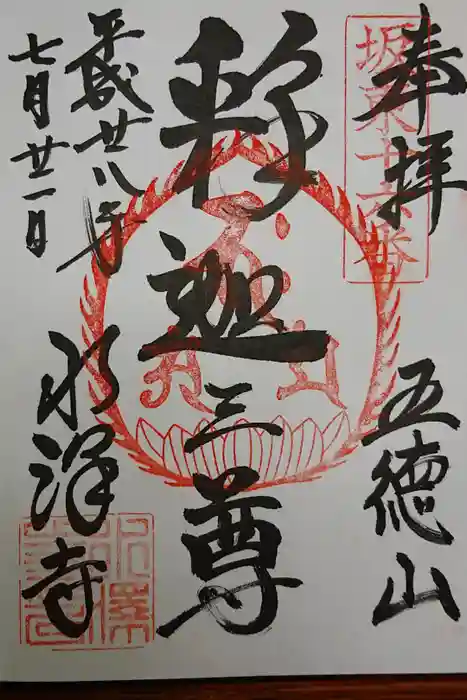 奉拝
坂東十六番
五徳山
釈迦三尊
平成廿八年
七月廿一日
水澤寺